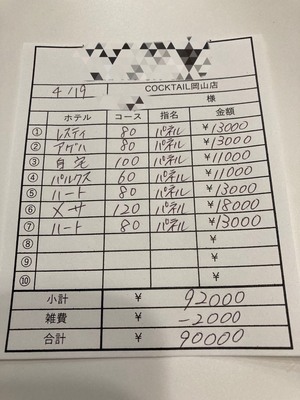 COCKTAIL岡山店
4/19 様
ホテル コース 指名 金額
① レスティ 80 パネル ¥13000
② アゲハ 80 パネル ¥13000
③ 自宅 100 パネル ¥11000
④ パルクス 60 パネル ¥11000
⑤ ハート 80 パネル ¥13000
⑥ メサ 120 パネル ¥18000
⑦ ハート 80 パネル ¥13000
⑧ ¥
⑨ ¥
⑩ ¥
小計 ¥ 92000
雑費 ¥ -2000
合計 ¥ 90000